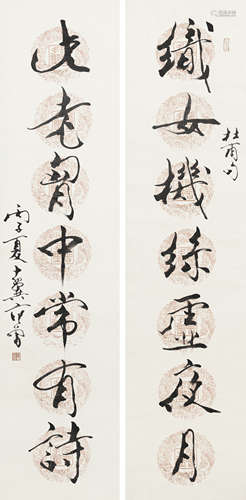 織女機絲虛夜月
杜甫句
老胸中常有詩
丙子夏十翼范曾